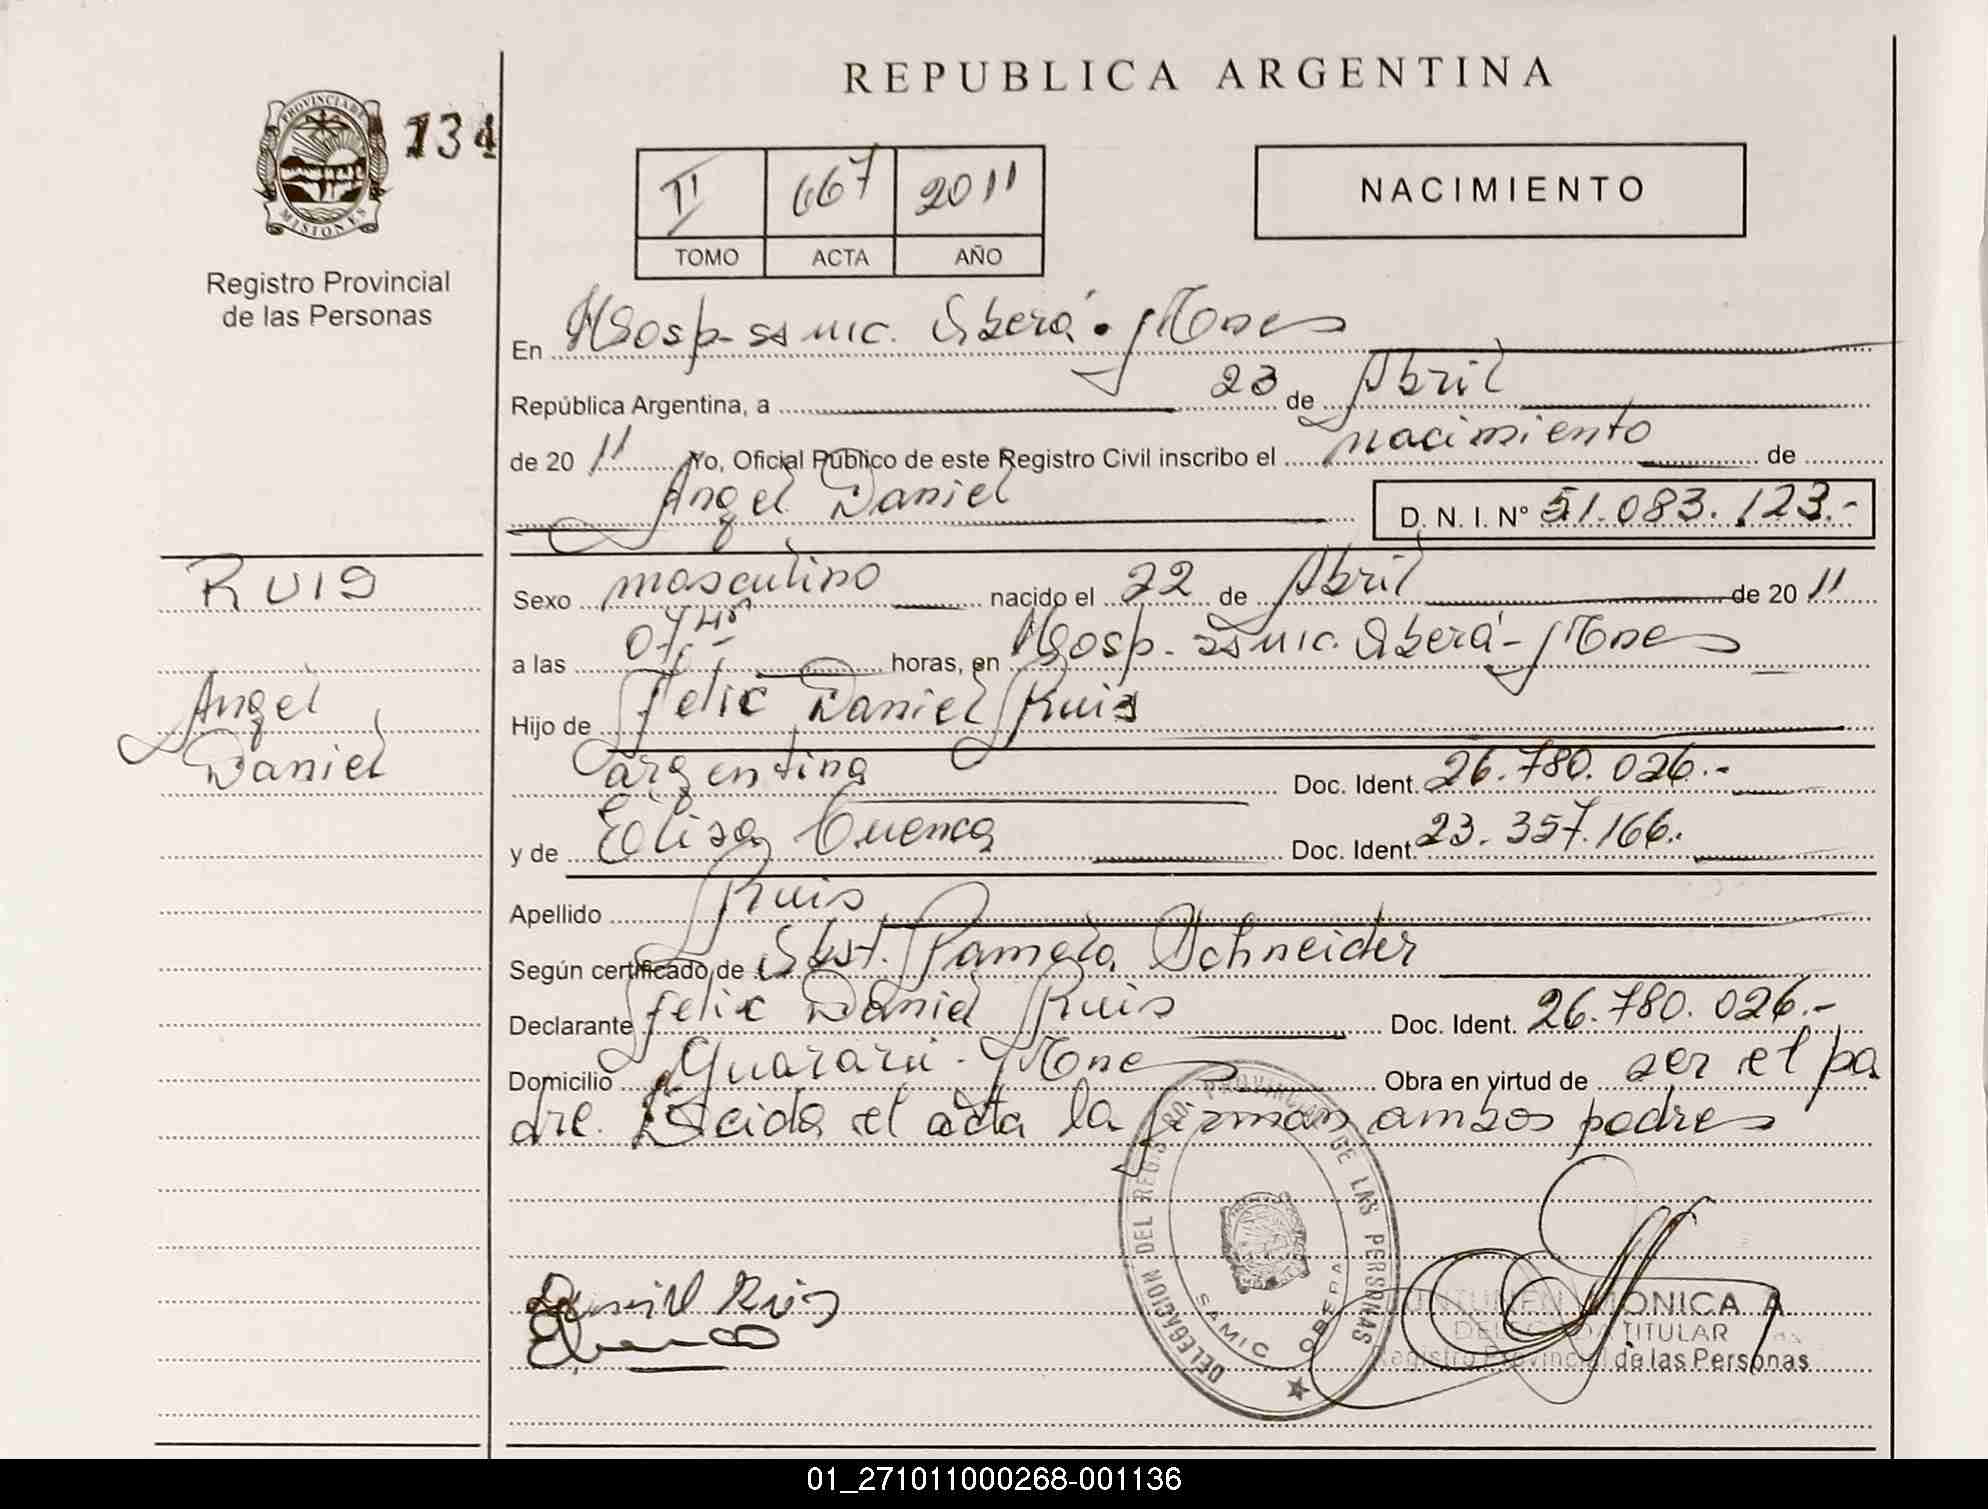 REPUBLICA ARGENTINA
PROVINCIA DE
MISIONES
134
Registro Provincial
de las Personas
II 667 2011
TOMO ACTA AÑO
NACIMIENTO
En Hosp. ssmic. Oberá. Mones
República Argentina, a 23 de Abril
de 20 11 Yo, Oficial Público de este Registro Civil inscribo el nacimiento de
Angel Daniel D. N. I. N° 51.083.123.-
RUIS
Angel
Daniel
Sexo masculino nacido el 22 de Abril de 20 11
a las 07,45 horas, en Hosp. ssmic. Oberá - Mones
Hijo de Felix Daniel Ruis
argentina Doc. Ident. 26.780.026.-
y de Elisa Cuenca Doc. Ident. 23.357.166.
Apellido Ruis
Según certificado de Obst. Pamela Schneider
Declarante Felix Daniel Ruis Doc. Ident. 26.780.026.-
Domicilio Guarani - Mone Obra en virtud de ser el pa
dre. Leida el acta la firman ambos padres
Daniel Ruis
DELEGACION DEL REGISTRO PROVINCIAL DE LAS PERSONAS
SAMIC OBERA
MONICA A.
DELEGADA TITULAR
Registro Provincial de las Personas
01_271011000268-001136